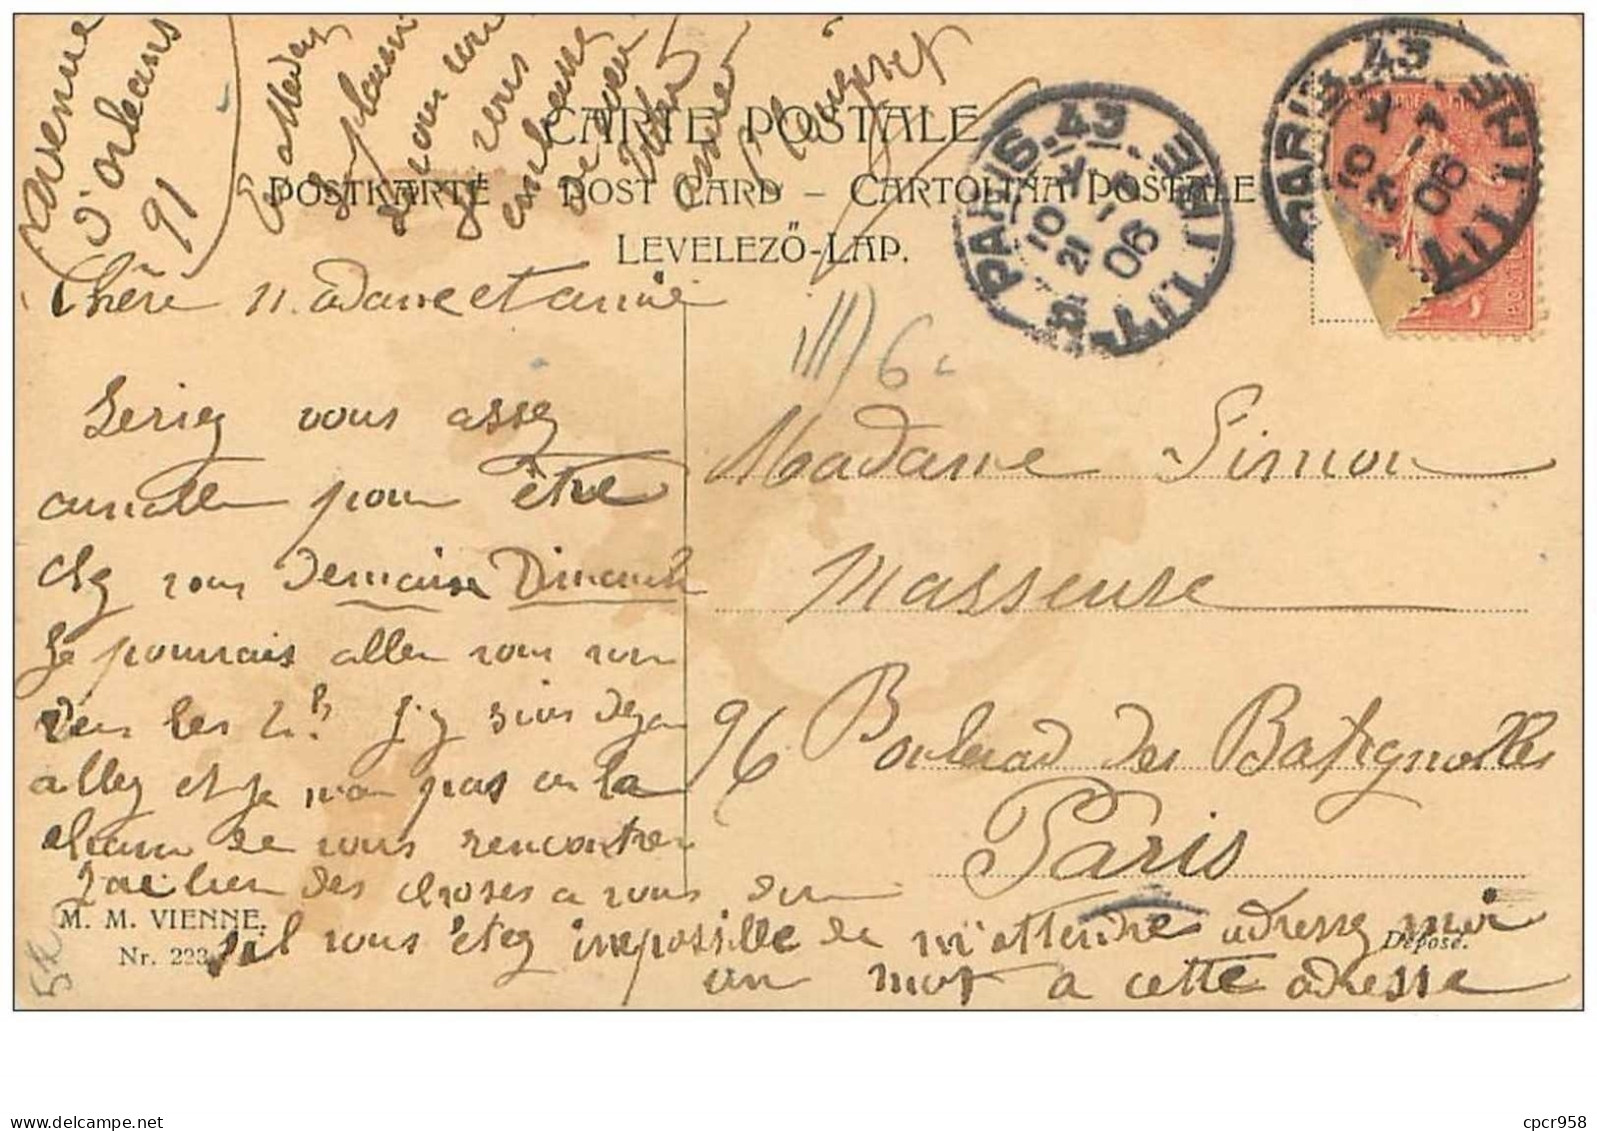 avenue
d'orleans
91
En attendant
le plaisir
de vous voir
je vous
embrasse
CARTE POSTALE
POSTKARTE – POST CARD – CARTOLINA POSTALE
LEVELEZŐ-LAP.
PARIS. 43
R. LITTRÉ
10
21
06
PARIS. 43
R. LITTRÉ
10
21
06
Chère Madame et amie
6
Seriez vous assez
aimable pour être
chez vous demain Dimanche
Je pourrais aller vous voir
vers les 2h. J'y suis deja
allez et je n'ai pas eu la
chance de vous rencontrer
J'ai bien des choses a vous dire
s'il vous étez impossible de m'attendre adressez moi
un mot a cette adresse
Madame Simon
Masseuse
96 Boulevard des Batignolles
Paris
M. M. VIENNE.
Nr. 223
Déposé.
cpcr958